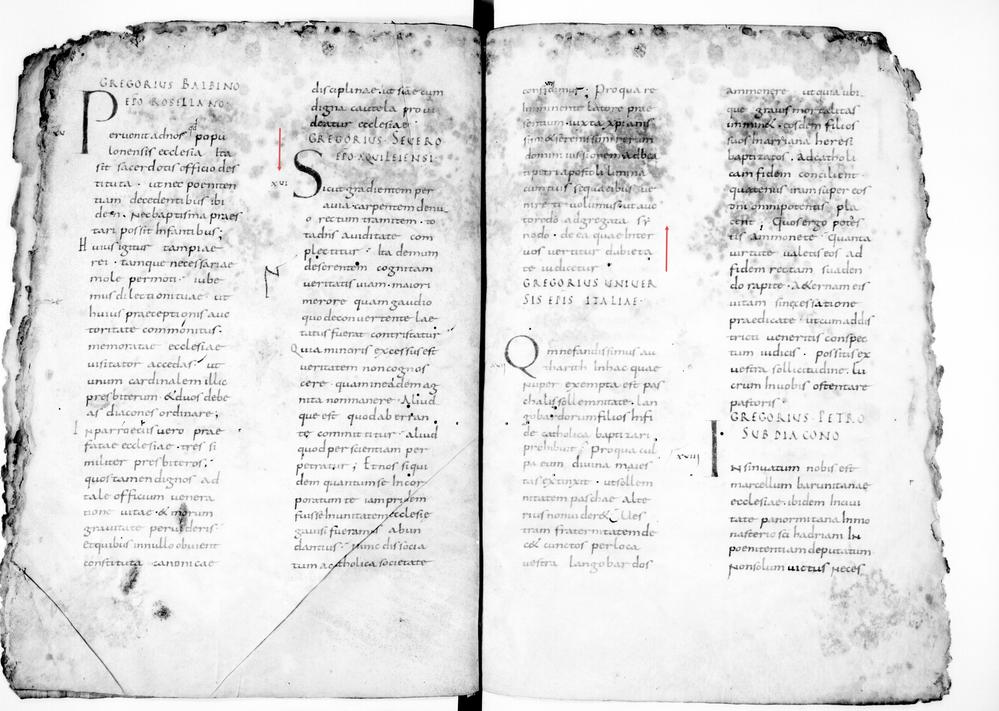 GREGORIUS BALBINO
EPO ROSELLANO
xv
Peruenit ad nos qd popu
lonensis ecclesia Ita
sit sacerdotis officio des
tituta · ut nec poeniten
tiam decedentibus ibi
dem · Nec baptisma praes
tari possit Infantibus;
Huius igitur tam prae
rei · tamque necessariae
mole permoti · iube
mus dilectioni tuae ut
huius praeceptionis auc
toritate commonitus ·
memoratae ecclesiae
uisitator accedas · ut
unum cardinalem illic
presbiterum · & duos debe
as diacones ordinare;
In parroeciis uero prae
fatae ecclesiae · tres si
militer presbiteros ·
quos tamen dignos ad
tale officium uenera
tione uitae · & morum
grauitate peruideris ·
et quibus in nullo obuient
constituta canonicae
disciplinae · ut suae cum
digna cautela proui
deatur ecclesiae
GREGORIUS · SEUERO
EPO AQUILEIENSI
xvi
Sicut gradientem per
auia · carpentem denuo
rectum tramitem · to
tadns auiditate com
plectitur · Ita demum
deserentem cognitam
ueritatis uiam · maiori
merore quam gaudio
quo de conuertente lae
tatus fuerat contristatur
Quia minoris excessus est
ueritatem non cognos
cere · quam in eadem ag
nita non manere · Aliud
que est quod ab erran
te committitur · aliud
quod per scientiam per
petratur; Et nos siqui
dem quantum se Incor
poratum te iam pridem
fuisse In unitatem ecclesie
gauisi fueramus abun
dantius · nunc dissocia
tum a catholica societate
confidimus; Pro qua re
Imminente latore prae
sentium · iuxta xpianis
simi & serenissimi rerum
domini iussionem ad bea
ti petri apostoli limina
cum tuis sequacibus ue
nire te uolumus · ut auc
tore do adgregata sy
nodo · de ea quae Inter
uos uertitur dubieta
te iudicetur
GREGORIUS UNIUER
SIS EPIS ITALIAE ·
Qm nefandissimus au
tharith In hac quae
Nuper exempta est pas
chali sollemnitate · lan
gobardorum filios In fi
de catholica baptizari
prohibuit; Pro qua cul
pa eum diuina maies
tas extinxit · ut sollem
nitatem paschae alte
rius non uider&; Ues
tram fraternitatem de
c& cunctos per loca
uestra langobardos
ammonere · ut quia ubi
que grauis mortalitas
immin& · eosdem filios
suos Inarriana heresi
baptizatos · ad catholi
cam fidem concilient
quatenus iram super eos
dni omnipotentis pla
cent; Quos ergo potes
tis ammonete · Quanta
uirtute ualetis eos ad
fidem rectam suaden
do rapite · Aeternam eis
uitam sine cessatione
praedicate · ut cum addis
tricti ueneritis conspec
tum iudicis · possitis ex
uestra sollicitudine · lu
crum In uobis ostentare
pastoris
GREGORIUS · PETRO
SUBDIACONO
xviii
Insinuatum nobis est
marcellum barunitanae
ecclesiae · ibidem In ciui
tate panormitana In mo
nasterio sci hadriani In
poenitentiam deputatum
Non solum uictus neces